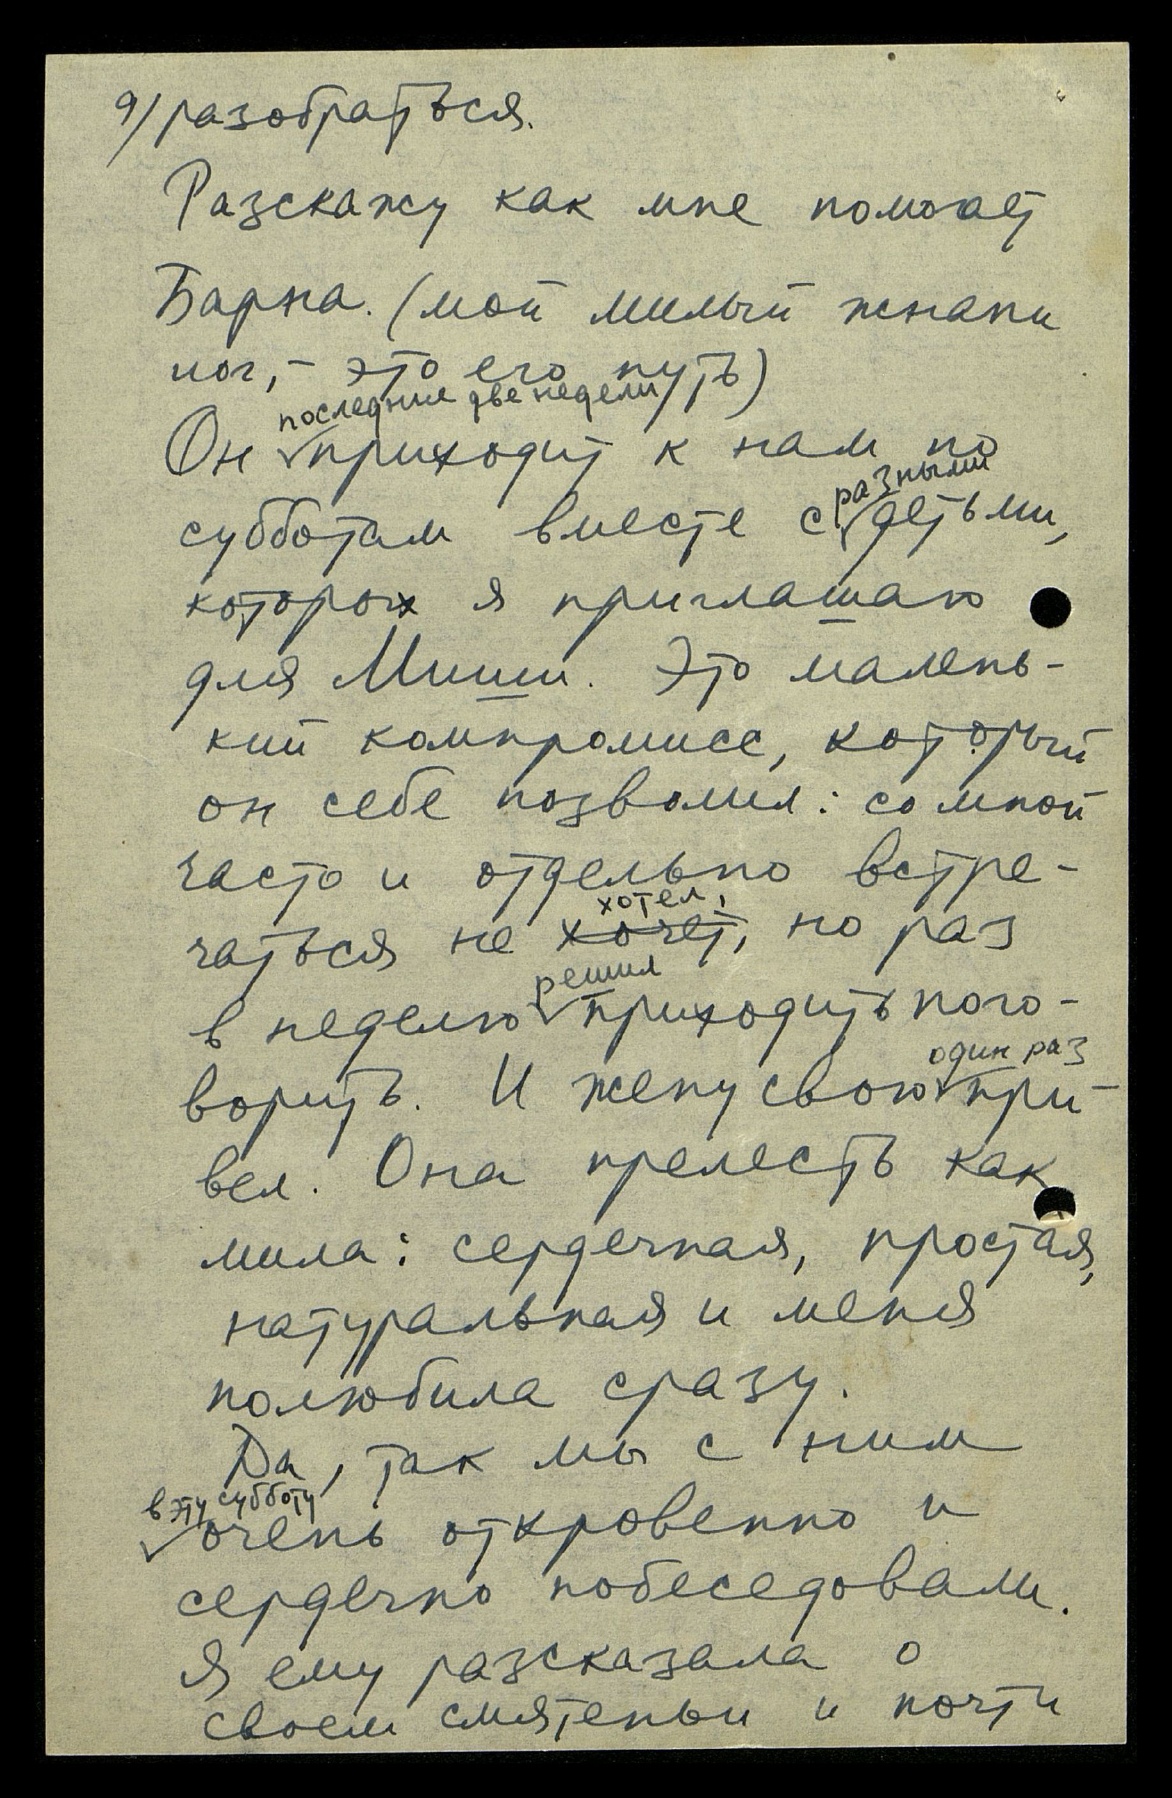 9/ разобраться.
Разскажу как мне помогает
Барна. (мой милый жнани
иог, – это его путь)
последние две недели
Он приходит к нам по
разными
субботам вместе с детьми,
которых я приглашаю
для Миши. Это малень-
кий компромисс, который
он себе позволил: со мной
часто и отдельно встре-
хотел,
чаться не хочет, но раз
решил
в неделю приходить пого-
один раз
ворить. И жену свою при-
вел. Она прелесть как
мила: сердечная, простая,
натуральная и меня
полюбила сразу.
Да, так мы с ним
в эту субботу
очень откровенно и
сердечно побеседовали.
Я ему разсказала о
своем смятеньи и почти